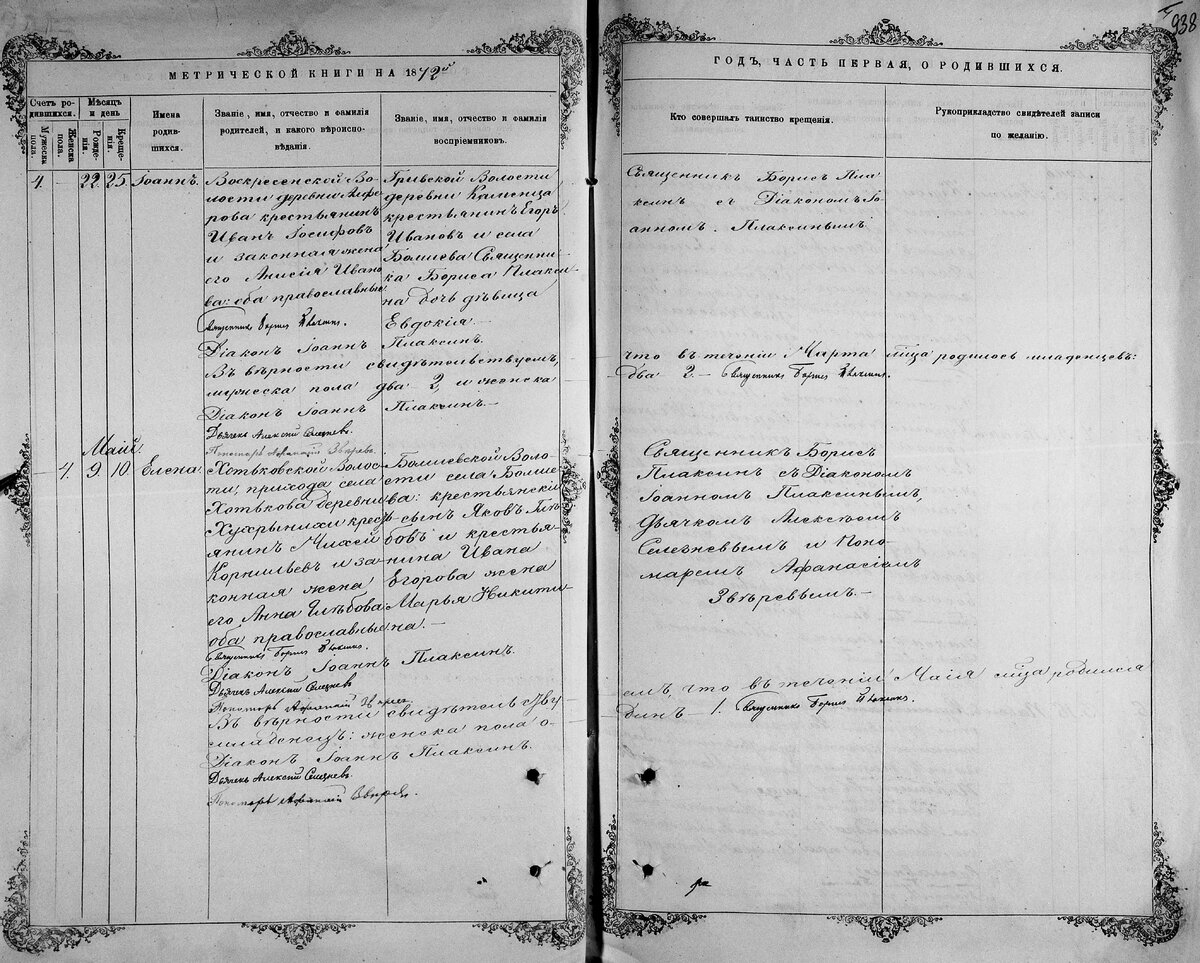 938
МЕТРИЧЕСКОЙ КНИГИ НА 1872й
Счетъ родившихся.
Мужеска пола.
Женска пола.
Мѣсяцъ и день
Рожденія.
Крещенія.
Имена родившихся.
Званіе, имя, отчество и фамилія родителей, и какого вѣроисповѣданія.
Званіе, имя, отчество и фамилія воспріемниковъ.
4. — 22. 25. Іоаннъ.
Воскресенской Волости деревни
крестьянинъ
Иванъ Іосифовъ
и законная жена
его Анисія Иванова: оба православные
Священникъ Борисъ Плаксинъ.
Діаконъ Іоаннъ Плаксинъ.
Волости
деревни Каменца
крестьянинъ Егоръ
Ивановъ и села
Болшева Священника Бориса Плаксина дочь дѣвица
Евдокія —
Въ вѣрности свидѣтельствуемъ,
мужеска пола два 2, и женска
Діаконъ Іоаннъ Плаксинъ. —
Дьячекъ Алексій Селезневъ.
Пономарь Афанасій Звѣревъ.
Маій
4. 9. 10. Елена
Хотьковской Волости, прихода села
Хотькова деревни
крестьянинъ Михей
Корнильевъ и законная жена
его Анна Глѣбова
оба православные
Священникъ Борисъ Плаксинъ.
Болшевской Волости села Болшева: крестьянскій
сынъ Яковъ Глѣбовъ и крестьянина Ивана
Егорова жена
Марья Никитина. —
Діаконъ Іоаннъ Плаксинъ.
Дьячекъ Алексій Селезневъ
Пономарь Афанасій Звѣревъ
Въ вѣрности свидѣтельству
младенецъ: женска пола о-
Діаконъ Іоаннъ Плаксинъ.
Дьячекъ Алексій Селезневъ.
Пономарь Афанасій Звѣревъ
ГОДЪ, ЧАСТЬ ПЕРВАЯ, О РОДИВШИХСЯ.
Кто совершалъ таинство крещенія.
Рукоприкладство свидѣтелей записи по желанію.
Священникъ Борисъ Плаксинъ съ Діакономъ Іоанномъ Плаксинымъ
что въ теченіи Марта мѣсяца родилось младенцевъ:
два 2. — Священникъ Борисъ Плаксинъ.
Священникъ Борисъ
Плаксинъ съ Діакономъ
Іоанномъ Плаксинымъ,
Дьячкомъ Алексѣемъ
Селезневымъ и Пономаремъ Афанасіемъ
Звѣревымъ. —
емъ, что въ теченіи Маія мѣсяца родился
динъ — 1. Священникъ Борисъ Плаксинъ.